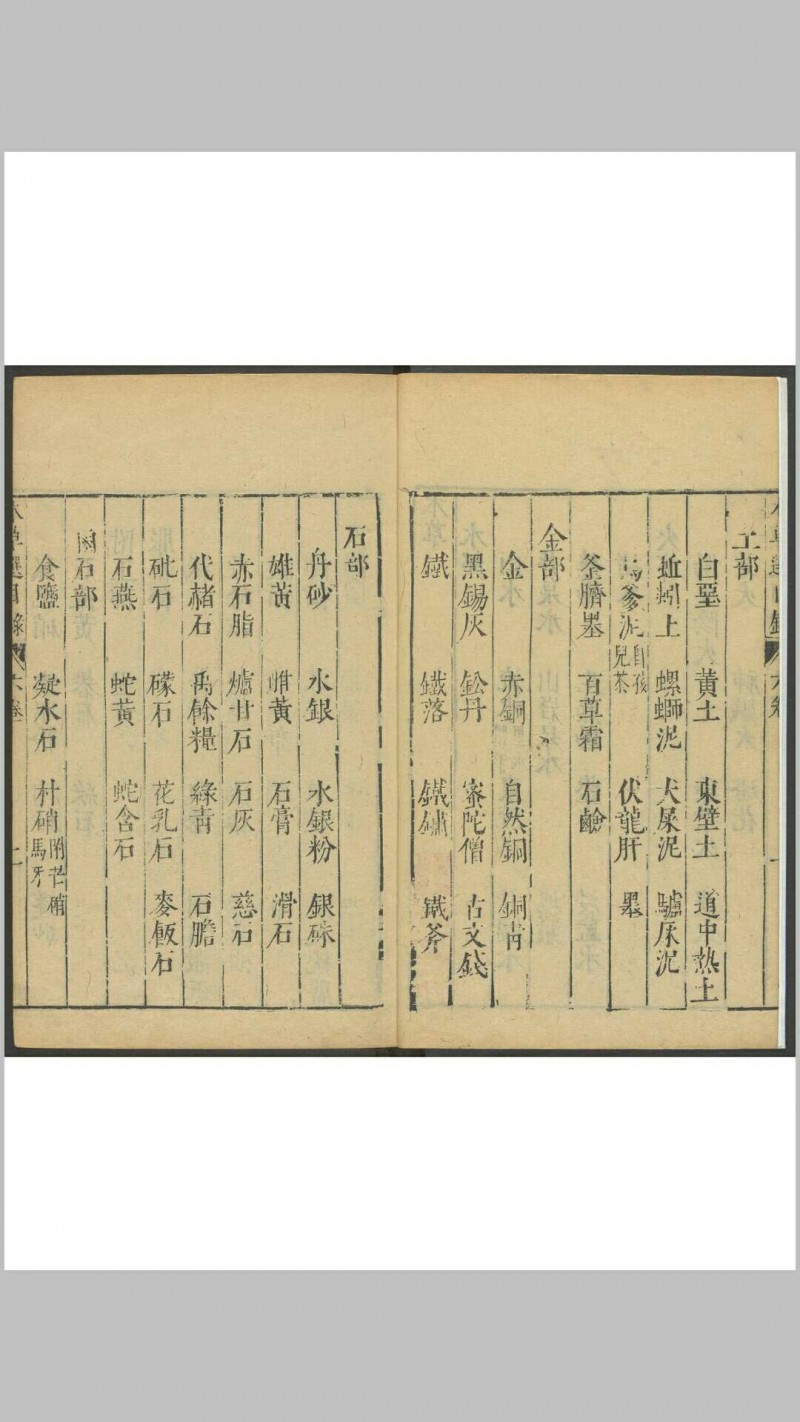 土部
白堊 黃土 東壁土 道中熱土
蚯蚓土 螺螄泥 犬尿泥 驢尿泥
烏爹泥 自孩兒茶 伏龍肝 墨
釜臍墨 百草霜 石鹼
金部
金 赤銅 自然銅 銅青
黑錫灰 鉛丹 密陀僧 古文錢
鐵 鐵落 鐵鏽 鐵斧
石部
丹砂 水銀 水銀粉 銀硃
雄黃 雌黃 石膏 滑石
赤石脂 爐甘石 石灰 慈石
代赭石 禹餘糧 綠青 石膽
砒石 礞石 花乳石 麥飯石
石燕 蛇黃 蛇含石
鹵石部
食鹽 凝水石 朴硝 附芒硝馬牙
本草選目錄 六卷